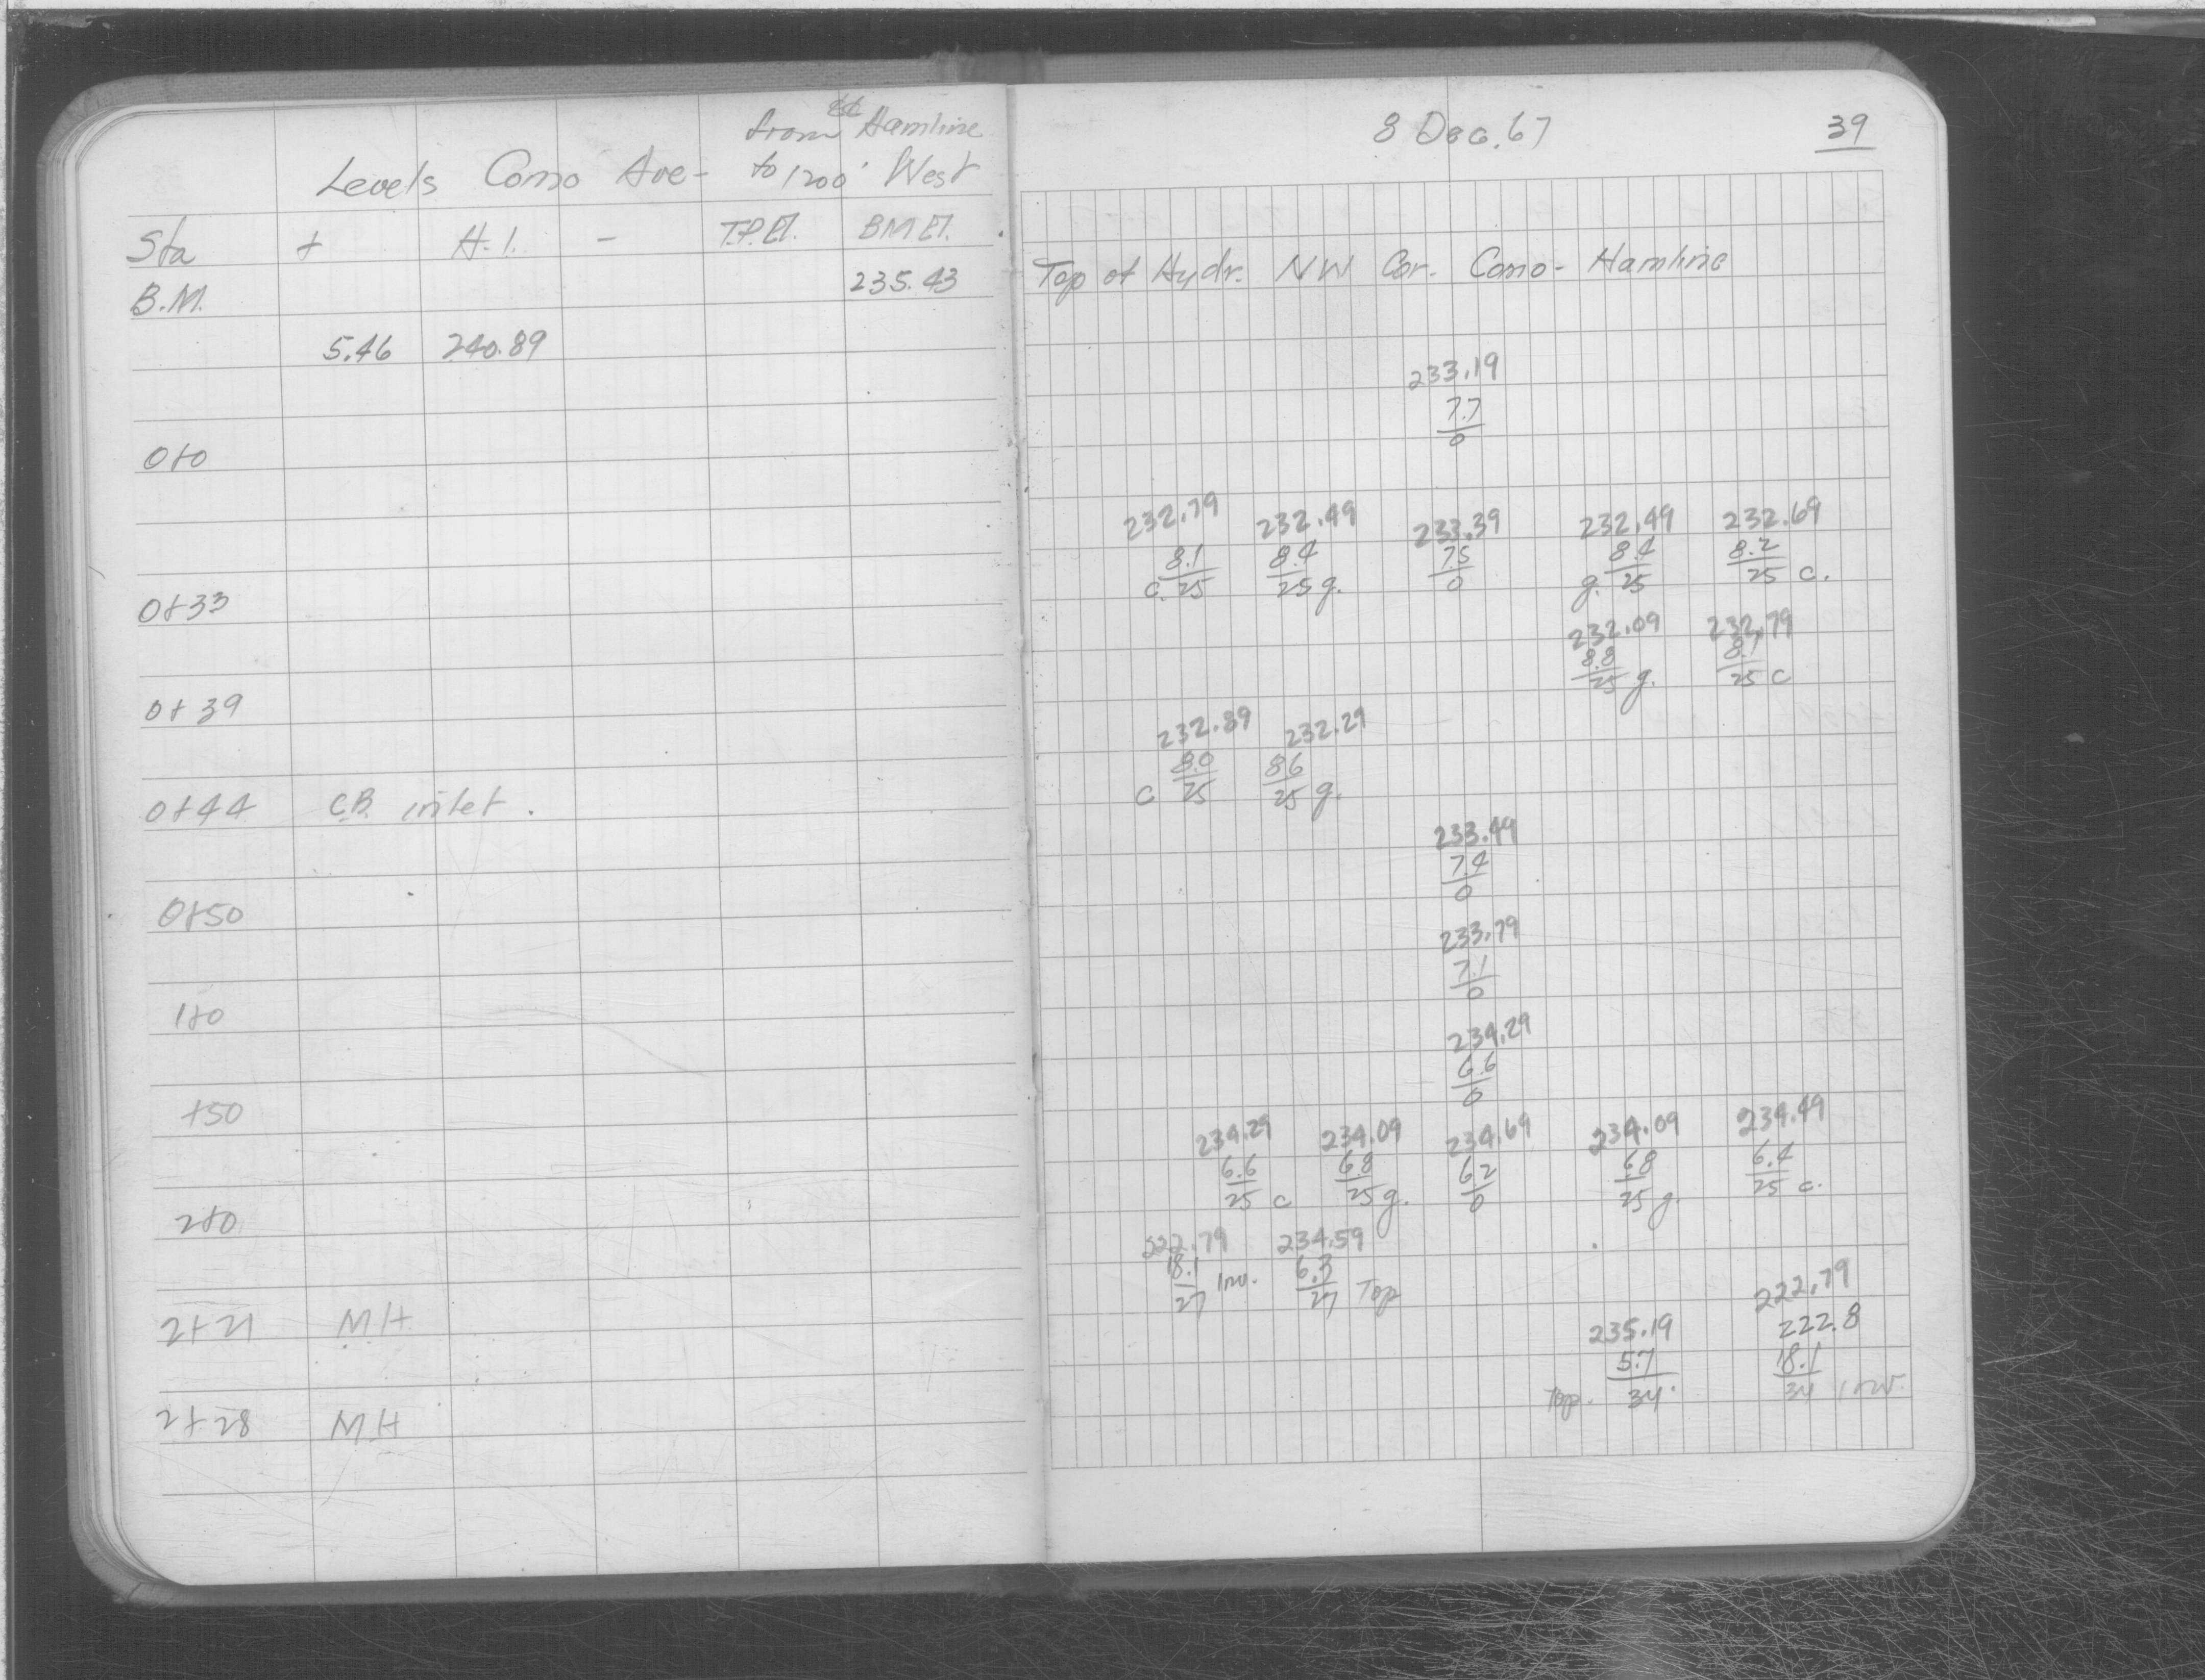 from Hamline
Levels Como Ave- to 1200' West
Sta + H.I. - T.P.El. B.M.El.
B.M. 235.43
5.46 240.89
0+0
0+33
0+39
0+44 C.B. inlet.
0+50
1+0
+50
2+0
2+21 M.H.
2+28 M.H
8 Dec. 67 39
Top of Hydr. NW Cor. Como- Hamline
233.19
7.7
0
232.79 232.49 233.39 232.49 232.69
8.1 8.4 7.5 8.4 8.2
c. 25 25 g. 0 g. 25 25 c.
232.09 232.79
8.8 8.1
25 g. 25 c
232.89 232.29
8.0 8.6
c 25 25 g.
233.49
7.4
0
233.79
7.1
0
234.29
6.6
0
234.29 234.09 234.69 234.09 234.49
6.6 6.8 6.2 6.8 6.4
25 c 25 g. 0 25 g. 25 c.
222.79 234.59
18.1 Inv. 6.3
27 27 Top
222.79
235.19 222.8
5.7 18.1
Top. 34 34 Inv.